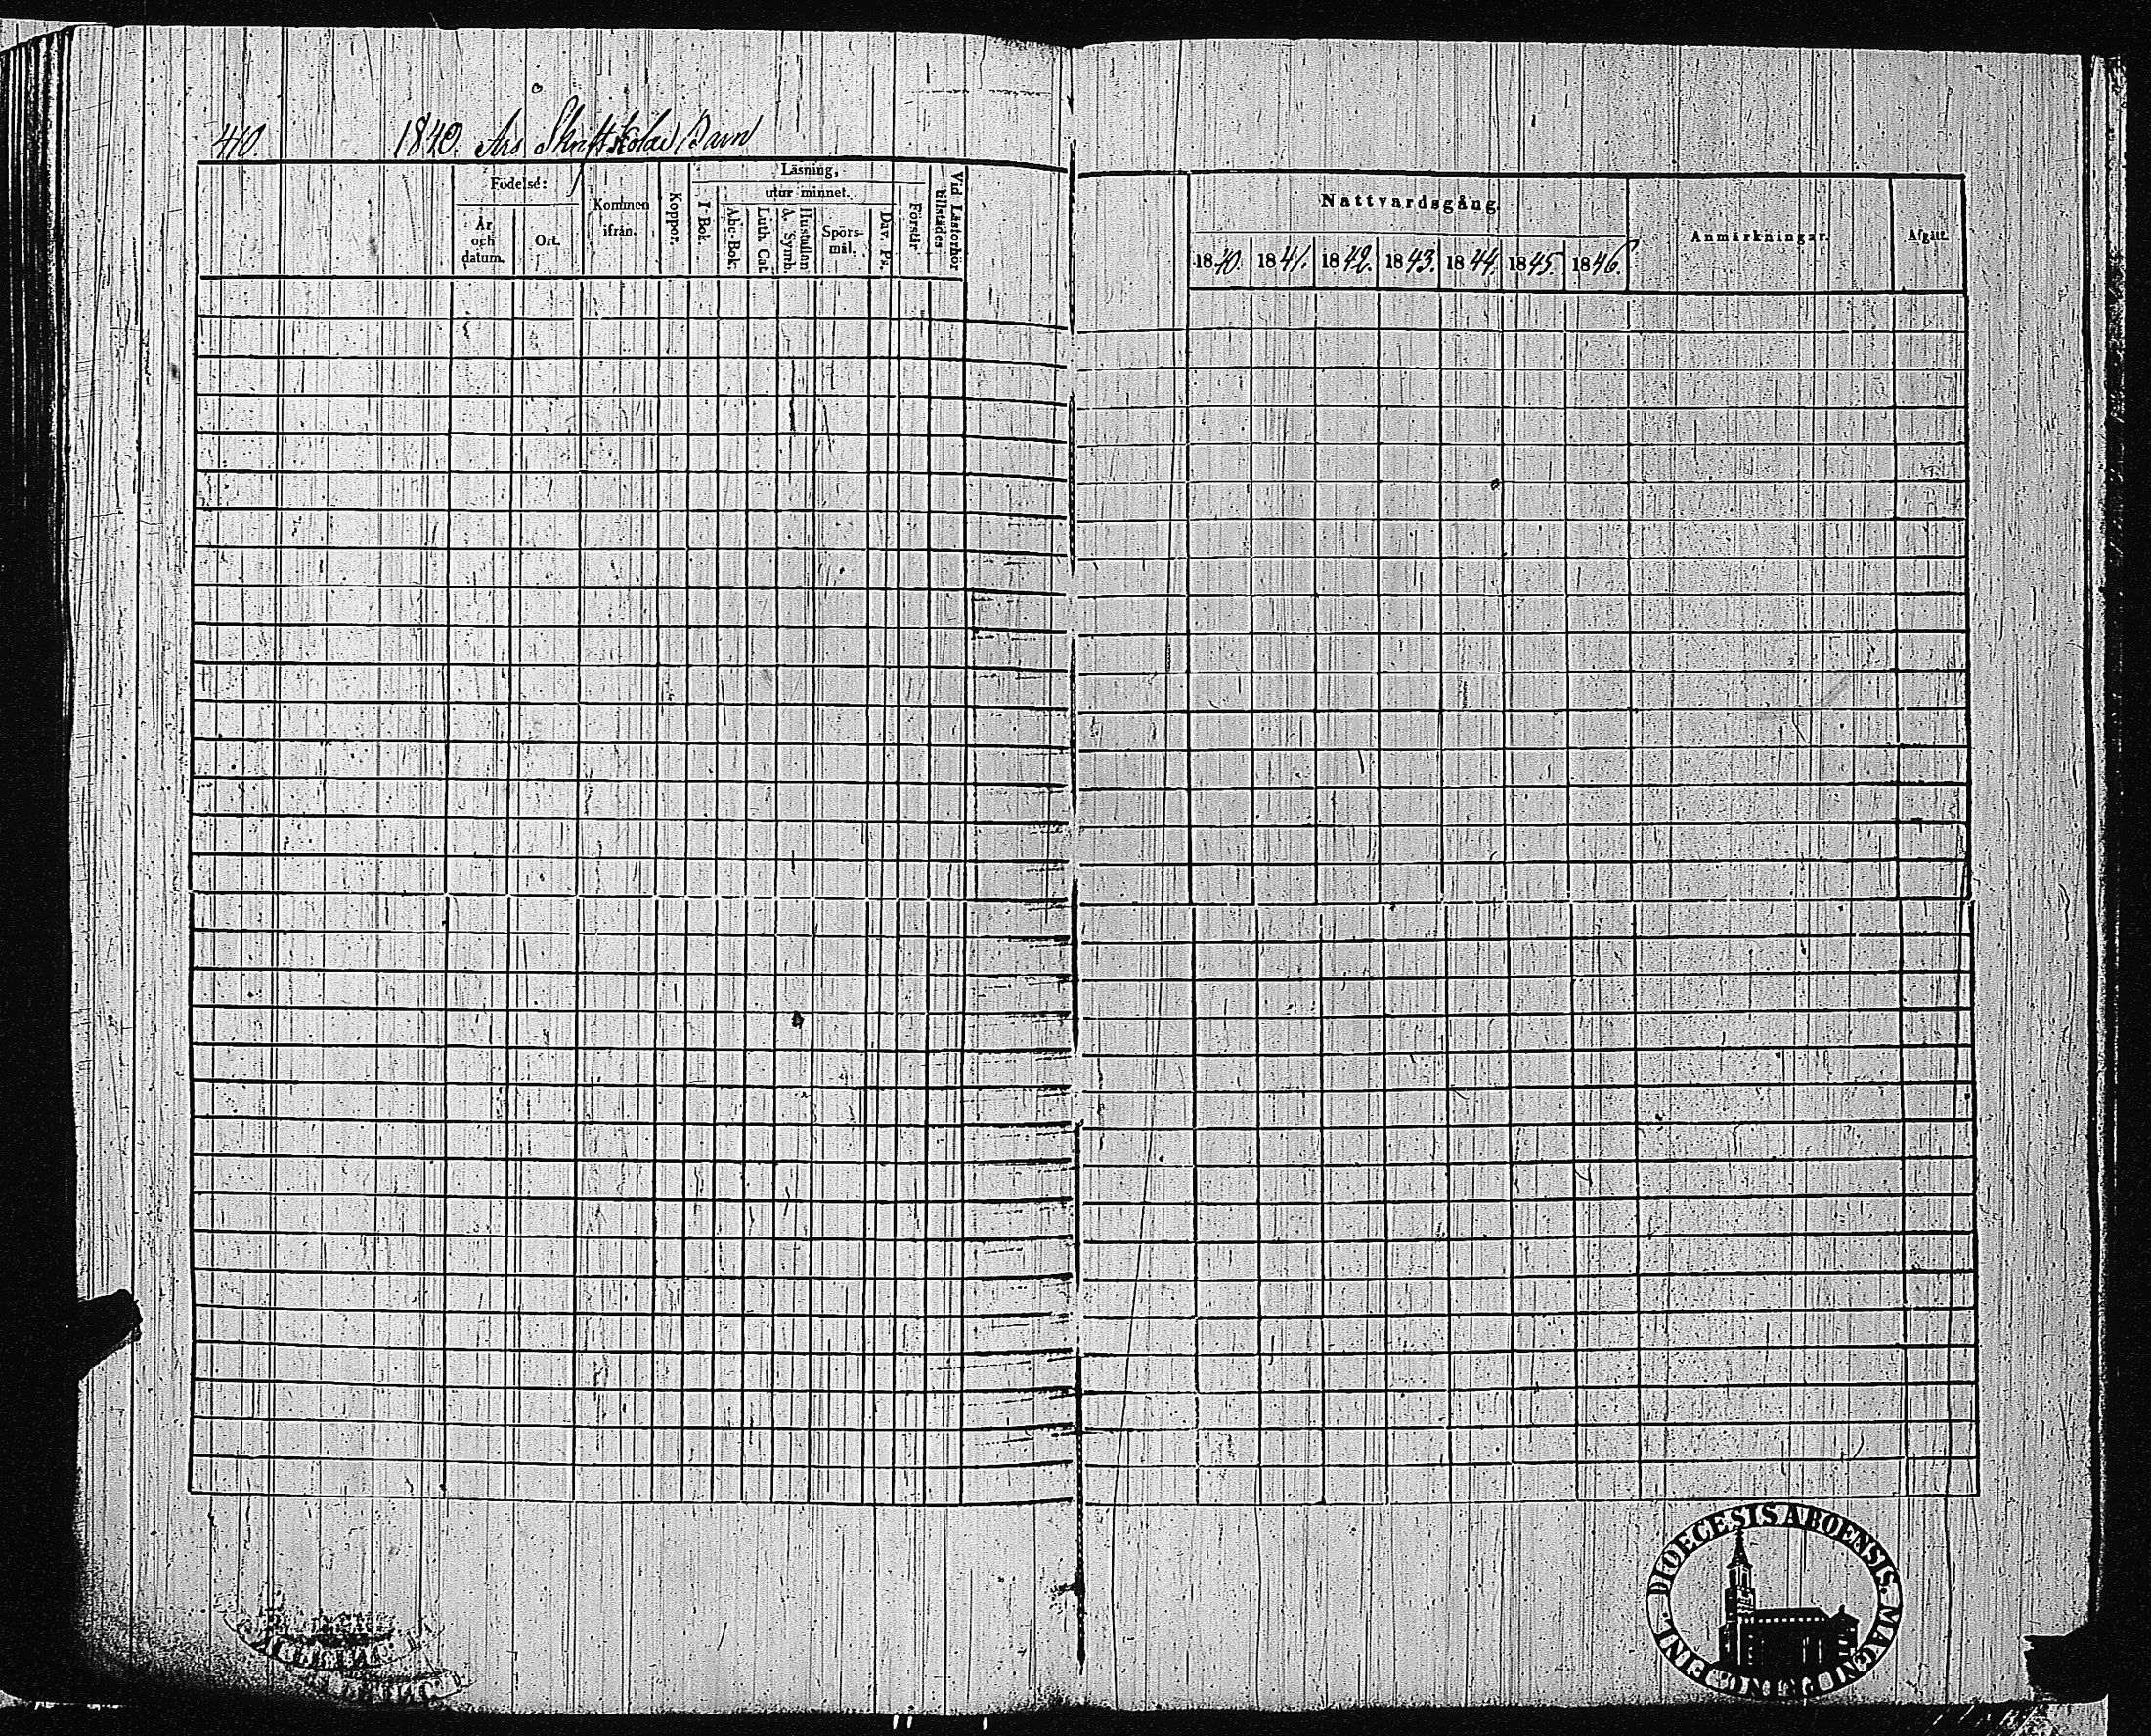 410. 1840. Års Skriftskolae Barn
Födelse:
År och datum.
Ort.
Kommen ifrån.
Koppor.
Läsning,
utur minnet.
I Bok.
Abc-Bok.
Luth. Cat.
Hustaflan A. Symb.
Spörsmål.
Dav. Ps.
Förstår.
Vid Läsförhör tillstädes
Nattvardsgång.
1840. 1841. 1842. 1843. 1844. 1845 1846.
Anmärkningar.
Afgått.
DIOECESIS ABOENSIS. MAGNI PRINC. FINL.